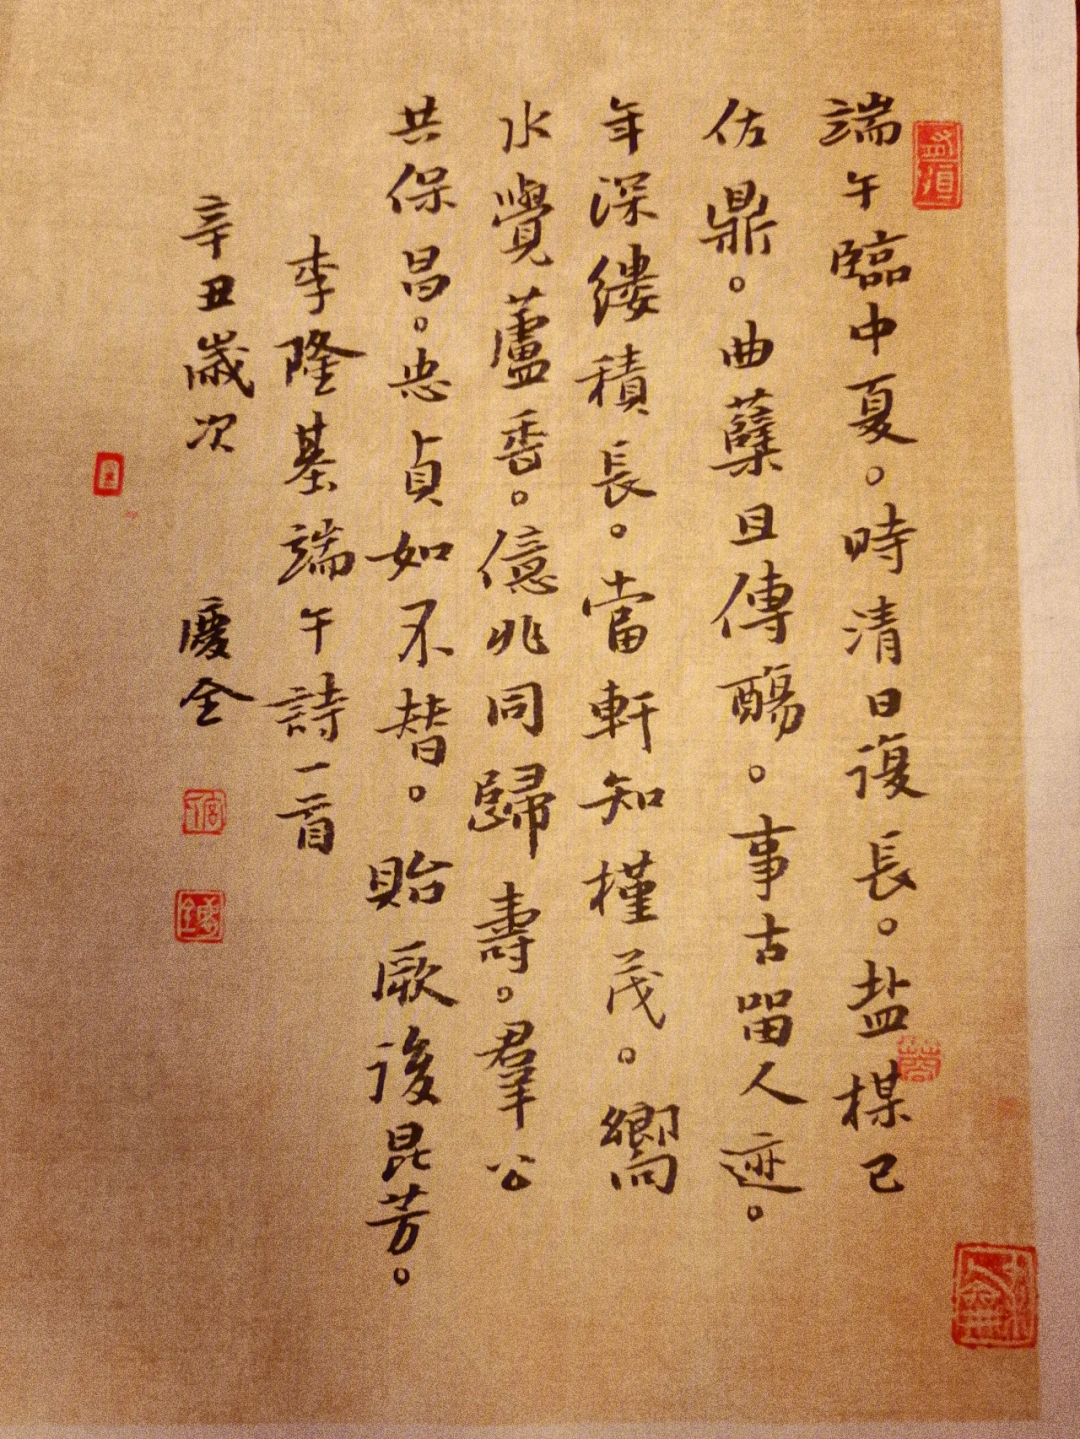 端午臨中夏。時清日復長。盐楳已
佐鼎。曲糵且傳觴。事古留人迹。
年深縷積長。當軒知槿茂。嚮
水覺蘆香。億兆同歸壽。羣公
共保昌。忠貞如不替。貽厥後昆芳。
李隆基端午詩一首
辛丑歲次 慶全